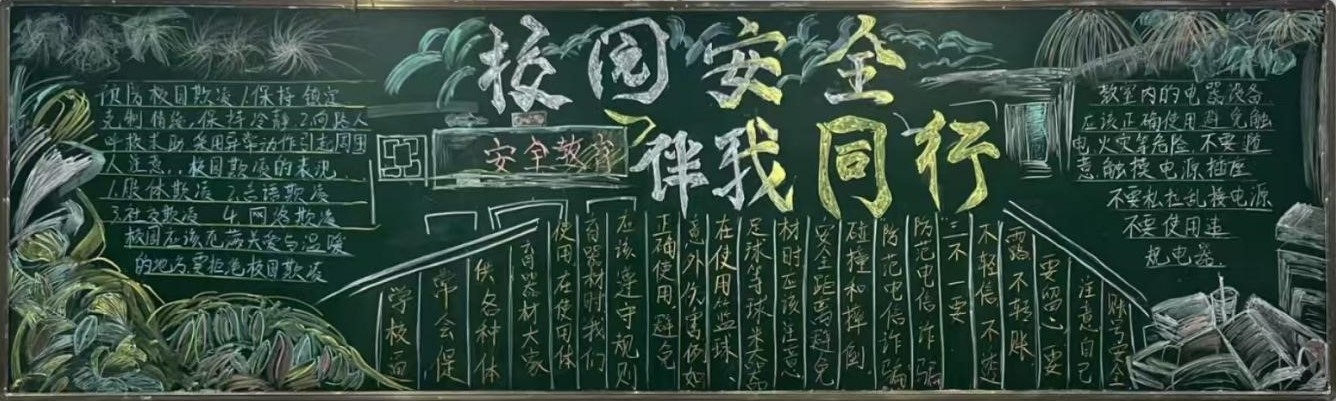 校园安全
伴我同行
安全教育
预防校园欺凌1.保持镇定
克制情绪,保持冷静2.向路人
呼救求助采用异常动作引起周围
人注意,校园欺凌的表现
1.肢体欺凌 2.言语欺凌
3.社交欺凌 4.网络欺凌
校园应该充满关爱与温暖
的地方要拒绝校园欺凌
学校画
常会提
供各种体
育器材大家
使用在使用体
育器材时我们
应该遵守规则
正确使用避免
意外伤害例如
在使用篮球、
足球等球类器
材时应该注意
安全距离避免
碰撞和摔倒
防范电信诈骗
防范电信诈骗
三不一要
不轻信不透
露不转账
要留心要
注意自己
账号安全
教室内的电器设备
应该正确使用避免触
电、火灾等危险,不要随
意触摸电源插座
不要私拉乱接电源
不要使用违
规电器.